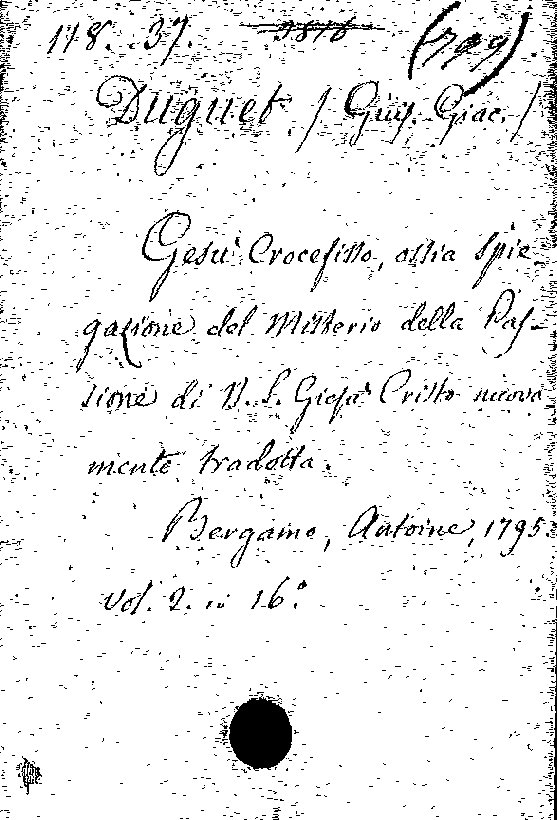 118. 37. 2816 (799)
Duguet / Giu. Giac. /
Gesu' Crocefisso, ossia Spie-
gazione del Misterio della Pas-
sione di N. S. Giesu' Cristo nuova
mente tradotta.
Bergamo, Antoine, 1795.
vol. 2. in 16.°